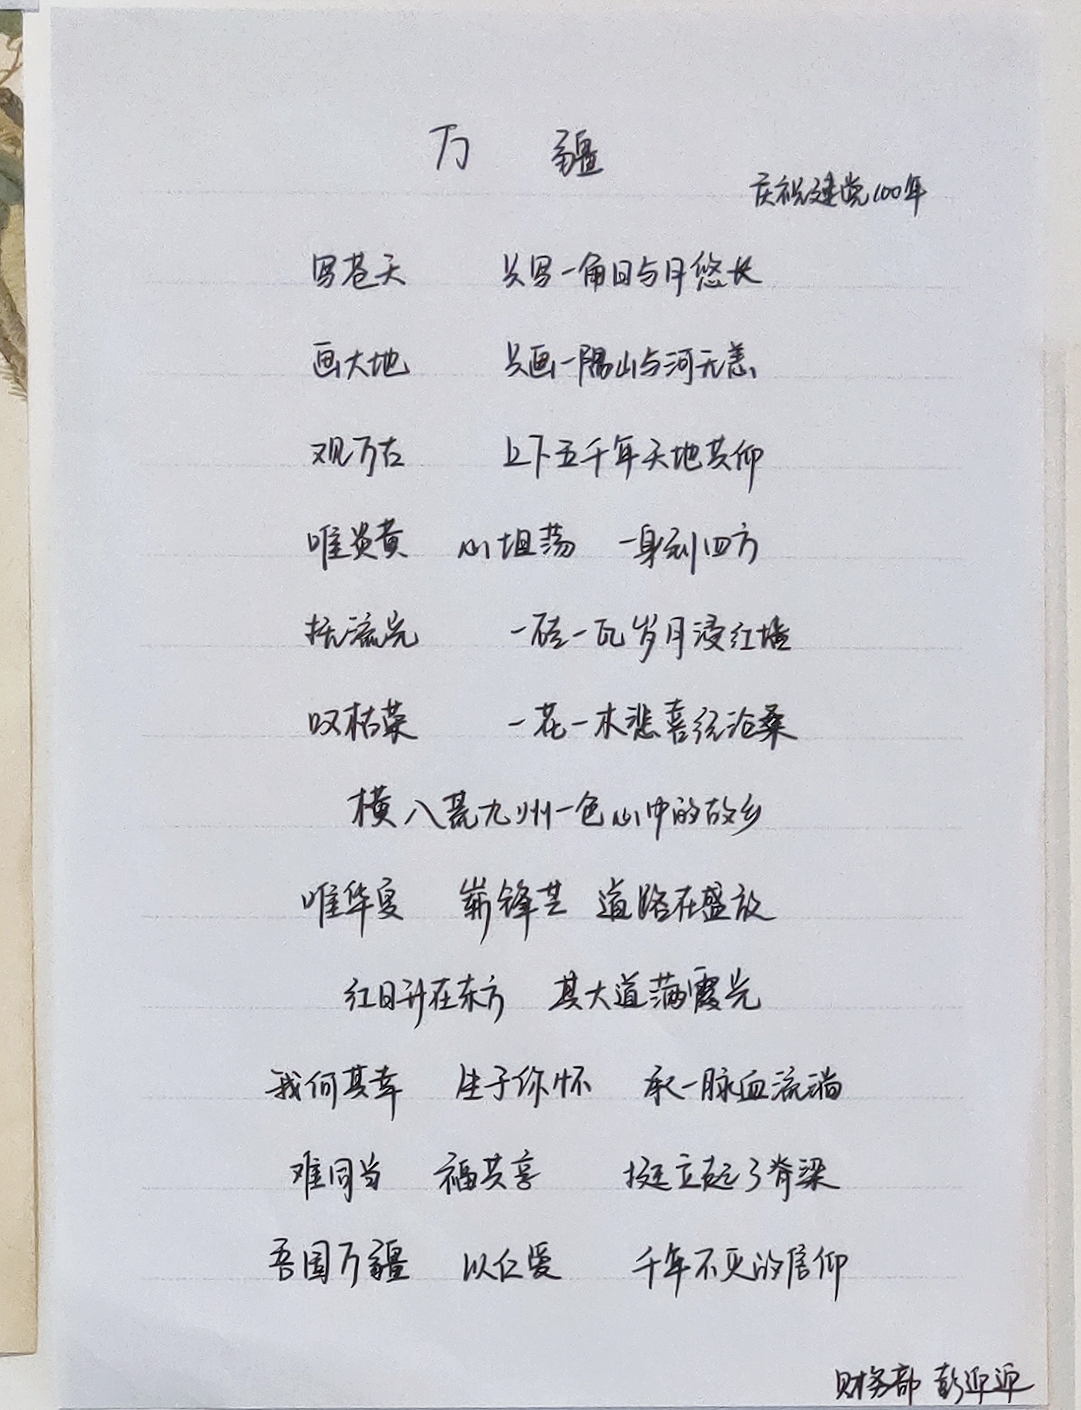 万 疆
庆祝建党100年
写苍天 只写一角日与月悠长
画大地 只画一隅山与河无恙
观万古 上下五千年天地共仰
唯炎黄 心坦荡 一身到四方
抚流光 一砖一瓦岁月浸红墙
叹枯荣 一花一木悲喜经沧桑
横八荒九州一色心中的故乡
唯华夏 崭锋芒 道路在盛放
红日升在东方 其大道满霞光
我何其幸 生于你怀 承一脉血流淌
难同当 福共享 挺立起了脊梁
吾国万疆 以仁爱 千年不灭的信仰
财务部 彭迎迎